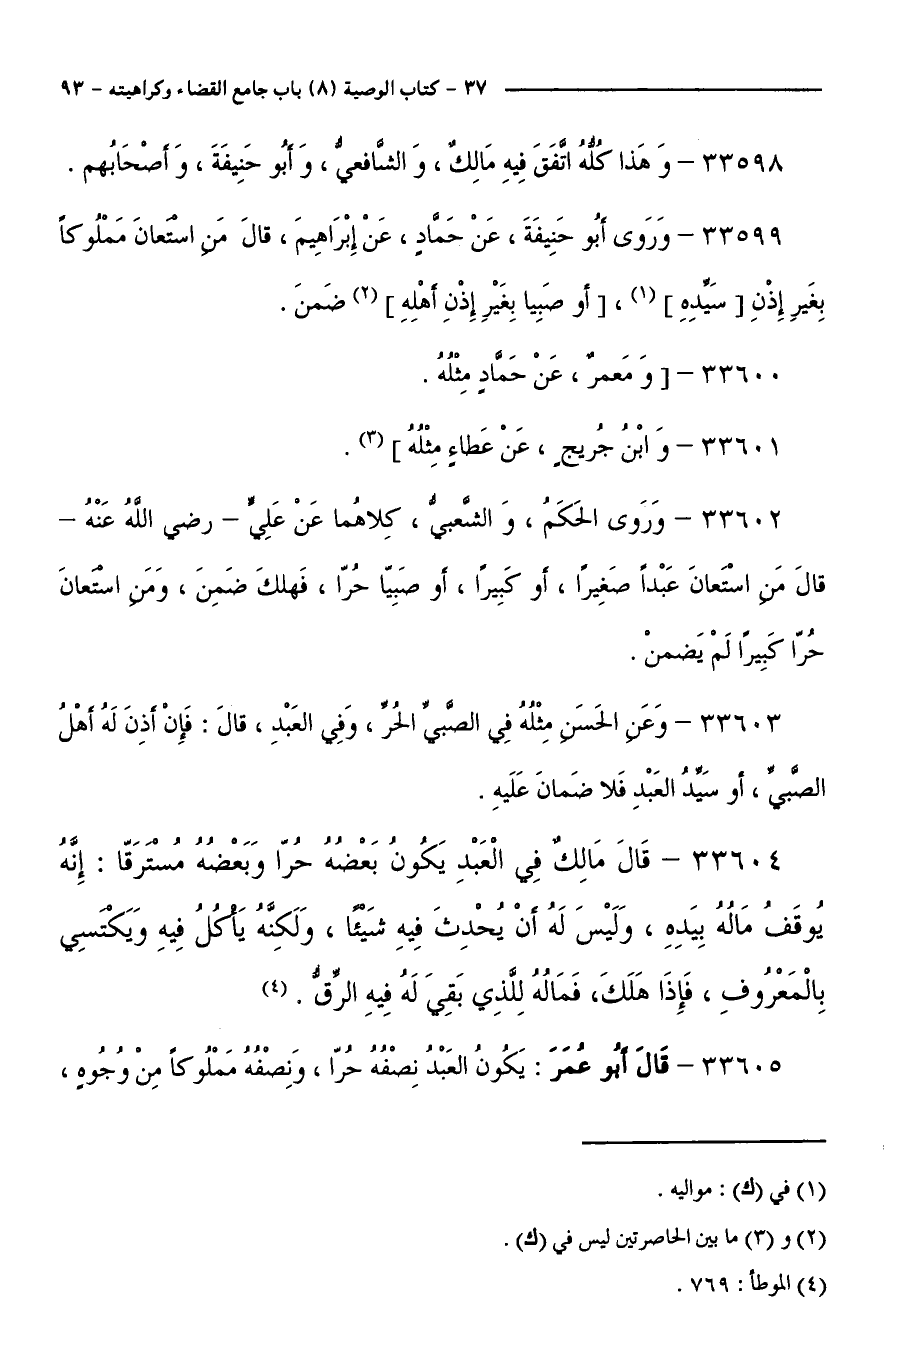 ٣٧ - كتاب الوصية (٨) باب جامع القضاء وكراهيته - ٩٣
٣٣٥٩٨ - وَ هَذا كُلُّهُ اتَّفَقَ فِيهِ مَالِكٌ ، وَ الشَّافعيُّ ، وَ أَبُو حَنِيفَةَ ، وَ أَصْحَابُهم .
٣٣٥٩٩ - وَرَوى أَبُو حَنِيفَةَ ، عَنْ حَمَّادٍ ، عَنْ إِبْرَاهِيمَ ، قالَ مَنِ اسْتَعانَ مَمْلُوكاً
بِغَيرِ إِذْنِ [ سَيِّدِهِ ] (١) ، [ أو صَبِيا بِغَيْرِ إِذْنِ أَهْلِهِ ] (٢) ضَمنَ .
٣٣٦٠٠ - [ وَ مَعمرٌ ، عَنْ حَمَّادٍ مِثْلُهُ .
٣٣٦٠١ - وَ ابْنُ جُريجٍ ، عَنْ عَطاءٍ مِثْلُهُ ] (٣) .
٣٣٦٠٢ - وَرَوى الحَكَمُ ، وَ الشَّعبيُّ ، كِلاهُما عَنْ عَلِيٍّ - رضي اللَّهُ عَنْهُ -
قالَ مَنِ اسْتَعَانَ عَبْداً صَغِيرًا ، أو كَبِيرًا ، أو صَبِيّا حُرّا ، فَهلكَ ضَمِنَ ، وَمَنِ اسْتَعانَ
حُرّا كَبِيرًا لَمْ يَضمنْ .
٣٣٦٠٣ - وَعَنِ الحَسَنِ مِثْلُهُ فِي الصَّبيِّ الحُرِّ ، وَفِي العَبْدِ ، قالَ : فَإِنْ أَذِنَ لَهُ أَهْلُ
الصَّبيِّ ، أو سَيِّدُ العَبْدِ فَلا ضَمانَ عَلَيهِ .
٣٣٦٠٤ - قَالَ مَالِكٌ فِي الْعَبْدِ يَكُونُ بَعْضُهُ حُرّا وَبَعْضُهُ مُسْتَرَقّا : إِنَّهُ
يُوقَفُ مَالُهُ بِيَدِهِ ، وَلَيْسَ لَهُ أَنْ يُحْدِثَ فِيهِ شَيْئًا ، وَلَكِنَّهُ يَأْكُلُ فِيهِ وَيَكْتَسِي
بِالْمَعْرُوفِ ، فَإِذَا هَلَكَ، فَمَالُهُ لِلَّذِي بَقِيَ لَهُ فِيهِ الرِّقُّ . (٤)
٣٣٦٠٥ - قَالَ أَبُو عُمَرَ : يَكُونُ العَبْدُ نِصْفُهُ حُرّا ، وَنِصْفُهُ مَمْلُوكاً مِنْ وُجُوهٍ ،
(١) في (ك) : مواليه .
(٢) و (٣) ما بين الحاصرتين ليس في (ك) .
(٤) الموطأ : ٧٦٩ .